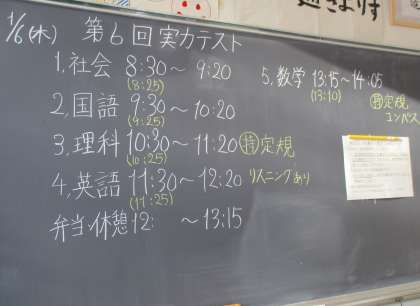 1/6(木) 第6回実力テスト
1,社会 8:30〜9:20
(8:25)
2,国語 9:30〜10:20
(9:25)
3,理科 10:30〜11:20 持定規
(10:25)
4,英語 11:30〜12:20 リスニングあり
(11:25)
弁当・休憩 12: 〜13:15
5,数学 13:15〜14:05
(13:10) 持定規、
コンパス